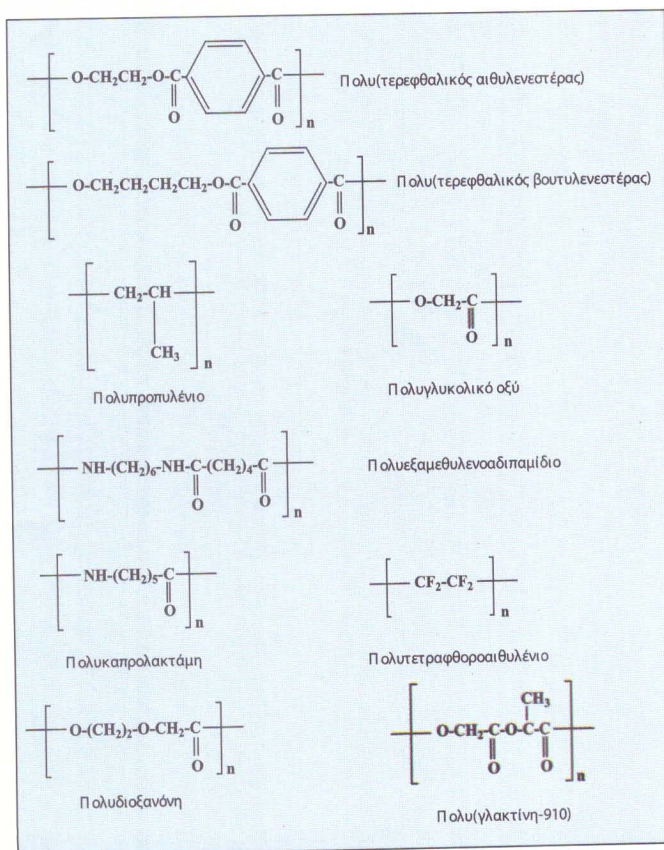 O-CH₂CH₂-O-C
C
O
O
n
Πολυ(τερεφθαλικός αιθυλενεστέρας)
O-CH₂CH₂CH₂CH₂-O-C
C
O
O
n
Πολυ(τερεφθαλικός βουτυλενεστέρας)
CH₂-CH
CH₃
n
Πολυπροπυλένιο
O-CH₂-C
O
n
Πολυγλυκολικό οξύ
NH-(CH₂)₆-NH-C-(CH₂)₄-C
O
O
n
Πολυεξαμεθυλενοαδιπαμίδιο
NH-(CH₂)₅-C
O
n
Πολυκαπρολακτάμη
CF₂-CF₂
n
Πολυτετραφθοροαιθυλένιο
O-(CH₂)₂-O-CH₂-C
O
n
Πολυδιοξανόνη
CH₃
O-CH₂-C-O-C-C
O
O
n
Πολυ(γλακτίνη-910)